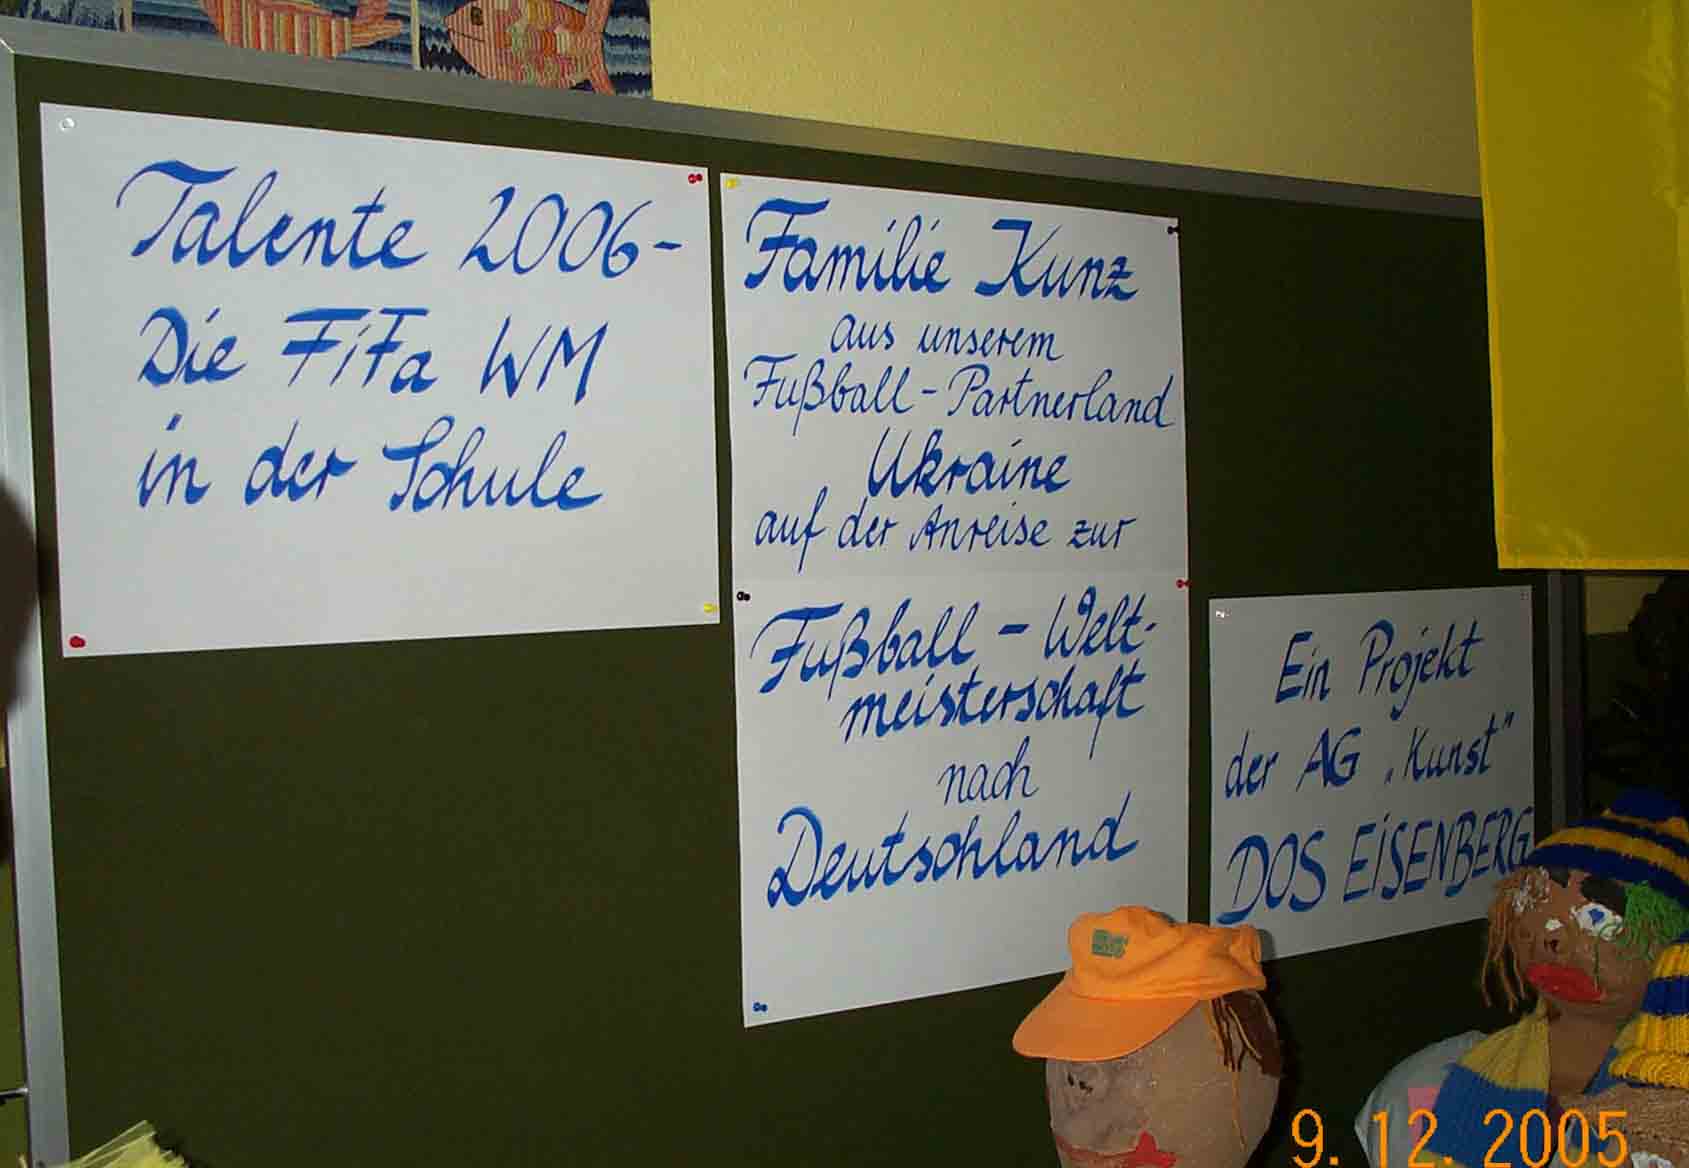 Talente 2006-
Die FiFa WM
in der Schule
Familie Kunz
aus unserem
Fußball-Partnerland
Ukraine
auf der Anreise zur
Fußball-Welt-
meisterschaft
nach
Deutschland
Ein Projekt
der AG „Kunst"
DOS EiSENBERG
9.12.2005